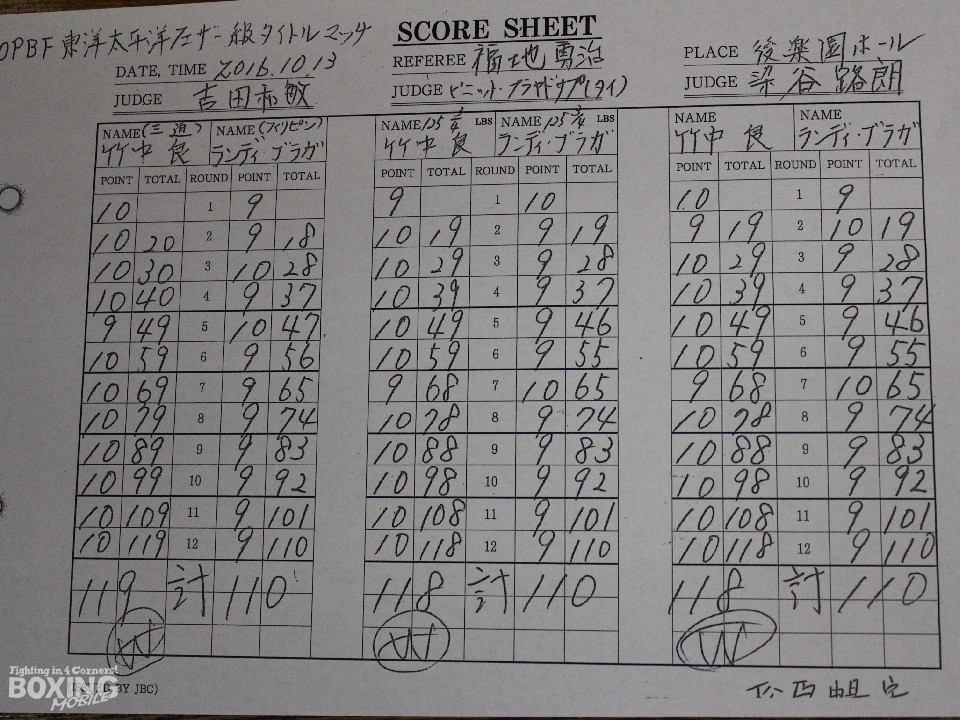 OPBF東洋太平洋フェザー級タイトルマッチ
SCORE SHEET
DATE, TIME 2016.10.13
REFEREE 福地勇治
PLACE 後楽園ホール
JUDGE 吉田和敏
JUDGE ビニット・プラヤドサプ(タイ)
JUDGE 染谷路朗
NAME (三迫) NAME (フィリピン)
竹中 良 ランディ・ブラガ
POINT TOTAL ROUND POINT TOTAL
10 1 9
10 20 2 9 18
10 30 3 10 28
10 40 4 9 37
9 49 5 10 47
10 59 6 9 56
10 69 7 9 65
10 79 8 9 74
10 89 9 9 83
10 99 10 9 92
10 109 11 9 101
10 119 12 9 110
119 計 110
W
NAME 125 LBS NAME 125 LBS
竹中 良 ランディ・ブラガ
POINT TOTAL ROUND POINT TOTAL
9 1 10
10 19 2 9 19
10 29 3 9 28
10 39 4 9 37
10 49 5 9 46
10 59 6 9 55
9 68 7 10 65
10 78 8 9 74
10 88 9 9 83
10 98 10 9 92
10 108 11 9 101
10 118 12 9 110
118 計 110
W
NAME NAME
竹中 良 ランディ・ブラガ
POINT TOTAL ROUND POINT TOTAL
10 1 9
9 19 2 10 19
10 29 3 9 28
10 39 4 9 37
10 49 5 9 46
10 59 6 9 55
9 68 7 10 65
10 78 8 9 74
10 88 9 9 83
10 98 10 9 92
10 108 11 9 101
10 118 12 9 110
118 計 110
W
BY JBC)
Fighting in 4 Corners!
BOXING
MOBILE